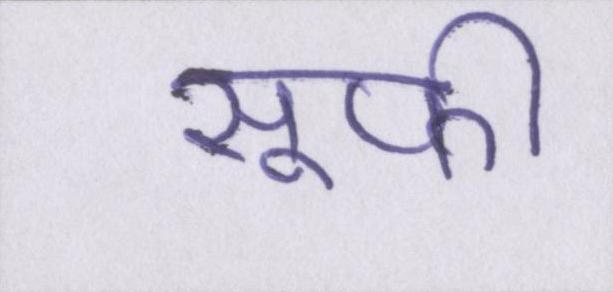 सूफी